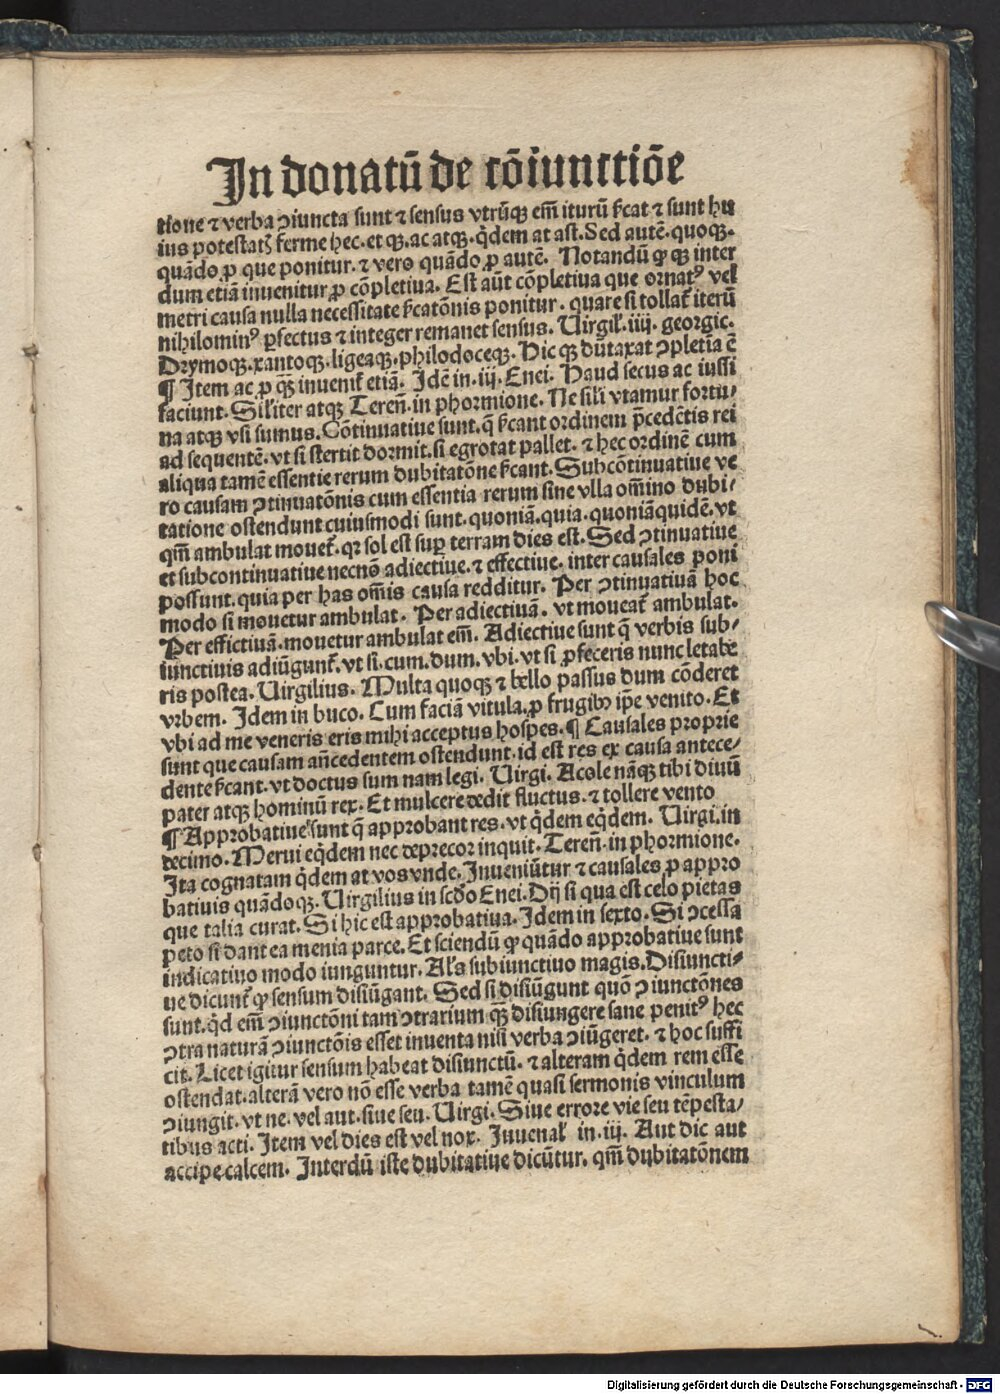 In donatū de cōiunctiōe
tione ⁊ verba ↄiuncta sunt ⁊ sensus vtrūqꝫ em̄ iturū ſ̄cat ⁊ sunt hu
ius potestatꝭ ferme hec. et qꝫ. ac atqꝫ. q̇dem at ast. Sed autē. quoqꝫ.
quādo ꝓ que ponitur. ⁊ vero quādo ꝓ autē. Notandū ꝙ qꝫ inter
dum etiā inuenitur ꝓ cōpletiua. Est aūt cōpletiua que ornatꝰ vel
metri causa nulla necessitate ſ̄catōnis ponitur. quare si tollat̄ iterū
nihilominꝰ ꝑfectus ⁊ integer remanet sensus. Uirgil̓. iiij. georgic.
Drymoqꝫ. xantoqꝫ. ligeaqꝫ. philodoceqꝫ. Hic qꝫ dūtaxat ↄpletīa ē
¶ Item ac ꝓ qꝫ̄ inuenit̄ etiā. Idē in. iij. Enei. Haud secus ac iussi
faciunt. Sil̓iter atqꝫ Teren̄. in phormione. Ne sil̓i vtamur fortu⸗
na atqꝫ vsi sumus. Cōtinuatiue sunt. q ſ̄cant ordinem p̄cedētis rei
ad sequentē. vt si stertit dormit. si egrotat pallet. ⁊ hec ordinē cum
aliqua tamē essentie rerum dubitatōne ſ̄cant. Subcōtinuatiue ve
ro causam ↄtinuatōnis cum essentia rerum sine vlla om̄ino dubi⸗
tatione ostendunt cuiusmodi sunt. quoniā. quia. quoniāquidē. vt
qm̄ ambulat mouet̄. qꝛ sol est suꝑ terram dies est. Sed ↄtinuatiue
et subcontinuatiue necnō adiectiue. ⁊ effectiue. inter causales poni
possunt. quia per has om̄is causa redditur. Per ↄtinuatiuā hoc
modo si mouetur ambulat. Per adiectiuā. vt moueat̄ ambulat.
Per effictiuā. mouetur ambulat em̄. Adiectiue sunt q̄ verbis sub⸗
iunctiuis adiūgunt̄. vt si. cum. dum. vbi. vt si ꝓfeceris nunc letabe
ris postea. Uirgilius. Multa quoqꝫ ⁊ bello passus dum cōderet
vrbem. Idem in buco. Cum faciā vitula. ꝓ frugibꝰ ip̄e venito. Et
vbi ad me veneris eris mihi acceptus hospes. ¶ Causales proprie
sunt que causam an̄cedentem ostendunt. id est res ex causa antece⸗
dente ſ̄cant. vt doctus sum nam legi. Uirgi. Acole nāqꝫ tibi diuū
pater atqꝫ hominū rex. Et mulcere dedit fluctus. ⁊ tollere vento
¶ Approbatiue sunt q̄ approbant res. vt q̇dem eq̇dem. Uirgi. in
decimo. Merui eq̇dem nec deprecor inquit. Teren̄. in phormione.
Ita cognatam q̇dem at vos vnde. Inueniūtur ⁊ causales ꝓ appro
batiuis quādoqꝫ. Uirgilius in scd̓o Enei. Dij si qua est celo pietas
que talia curat. Si hic est approbatiua. Idem in sexto. Si ↄcessa
peto si dant ea menia parce. Et sciendū ꝙ quādo approbatiue sunt
indicatiuo modo iunguntur. Al̓s subiunctiuo magis. Disiuncti⸗
ue dicunt̄ ꝙ sensum disiūgant. Sed si disiūgunt quō ↄiunctōnes
sunt. q̇d em̄ ↄiunctōni tam ↄtrarium qꝫ̄ disiungere sane penitꝰ hec
ↄtra naturā ↄiunctōis esset inuenta nisi verba ↄiūgeret. ⁊ hoc suffi
cit. Licet igitur sensum habeat disiunctū. ⁊ alteram q̇dem rem esse
ostendat. alterā vero nō esse verba tamē quasi sermonis vinculum
ↄiungit. vt ne. vel aut. siue seu. Uirgi. Siue errore vie seu tēpesta⸗
tibus acti. Item vel dies est vel nox. Iuuenal̓ in. iij. Aut dic aut
accipe calcem. Interdū iste dubitatiue dicūtur. qm̄ dubitatōnem
Digitalisierung gefördert durch die Deutsche Forschungsgemeinschaft - DFG